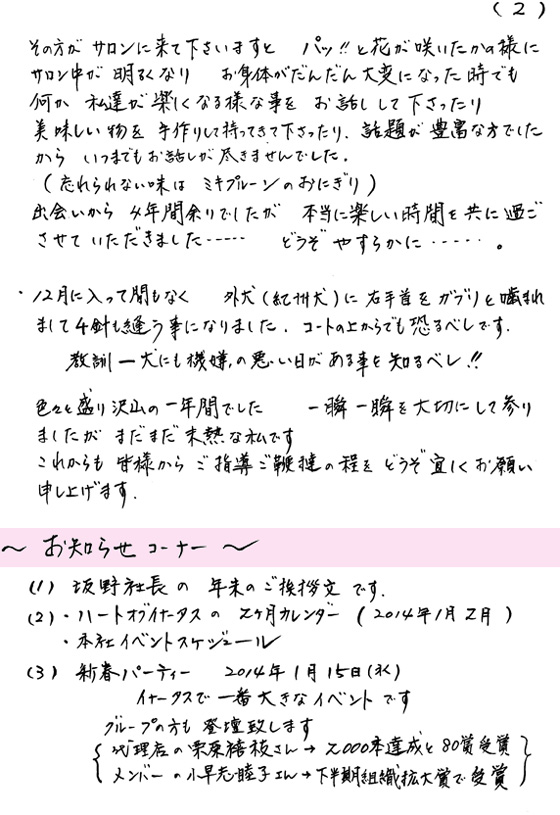 (2)
その方が サロンに来て下さいますと パッ!!と花が咲いたかの様に
サロン中が 明るくなり お身体がだんだん大変になった時でも
何か 私達が楽しくなる様な事を お話しして下さったり
美味しい物を 手作りして持ってきて下さったり、話題が豊富な方でした
から いつまでもお話しが尽きませんでした。
(忘れられない味は ミキプルーンのおにぎり)
出会いから 4年間余りでしたが 本当に楽しい時間を共に過ご
させていただきました‥‥‥ どうぞ やすらかに‥‥‥。
・12月に入って間もなく 外犬(紀州犬)に 右手首をガブリと噛まれ
まして4針も縫う事になりました。コートの上からでも恐るべしです。
教訓ー犬にも機嫌の悪い日がある事を知るべし!!
色々と盛り沢山の一年間でした 一瞬一瞬を大切にして参り
ましたが まだまだ未熟な私です
これからも 皆様から ご指導ご鞭撻の程を どうぞ宜しくお願い
申し上げます。
〜 お知らせコーナー 〜
(1) 坂野社長の 年末のご挨拶文です。
(2)・ハートオブイナータスの 2ヶ月カレンダー (2014年1月2月)
・本社イベントスケジュール
(3) 新春パーティー 2014年1月15日(水)
イナータスで一番大きなイベントです
グループの方も 登壇致します
代理店の栗原 さん→2000本達成と80賞受賞
メンバーの小早志睦子さん→下半期組織拡大賞で受賞